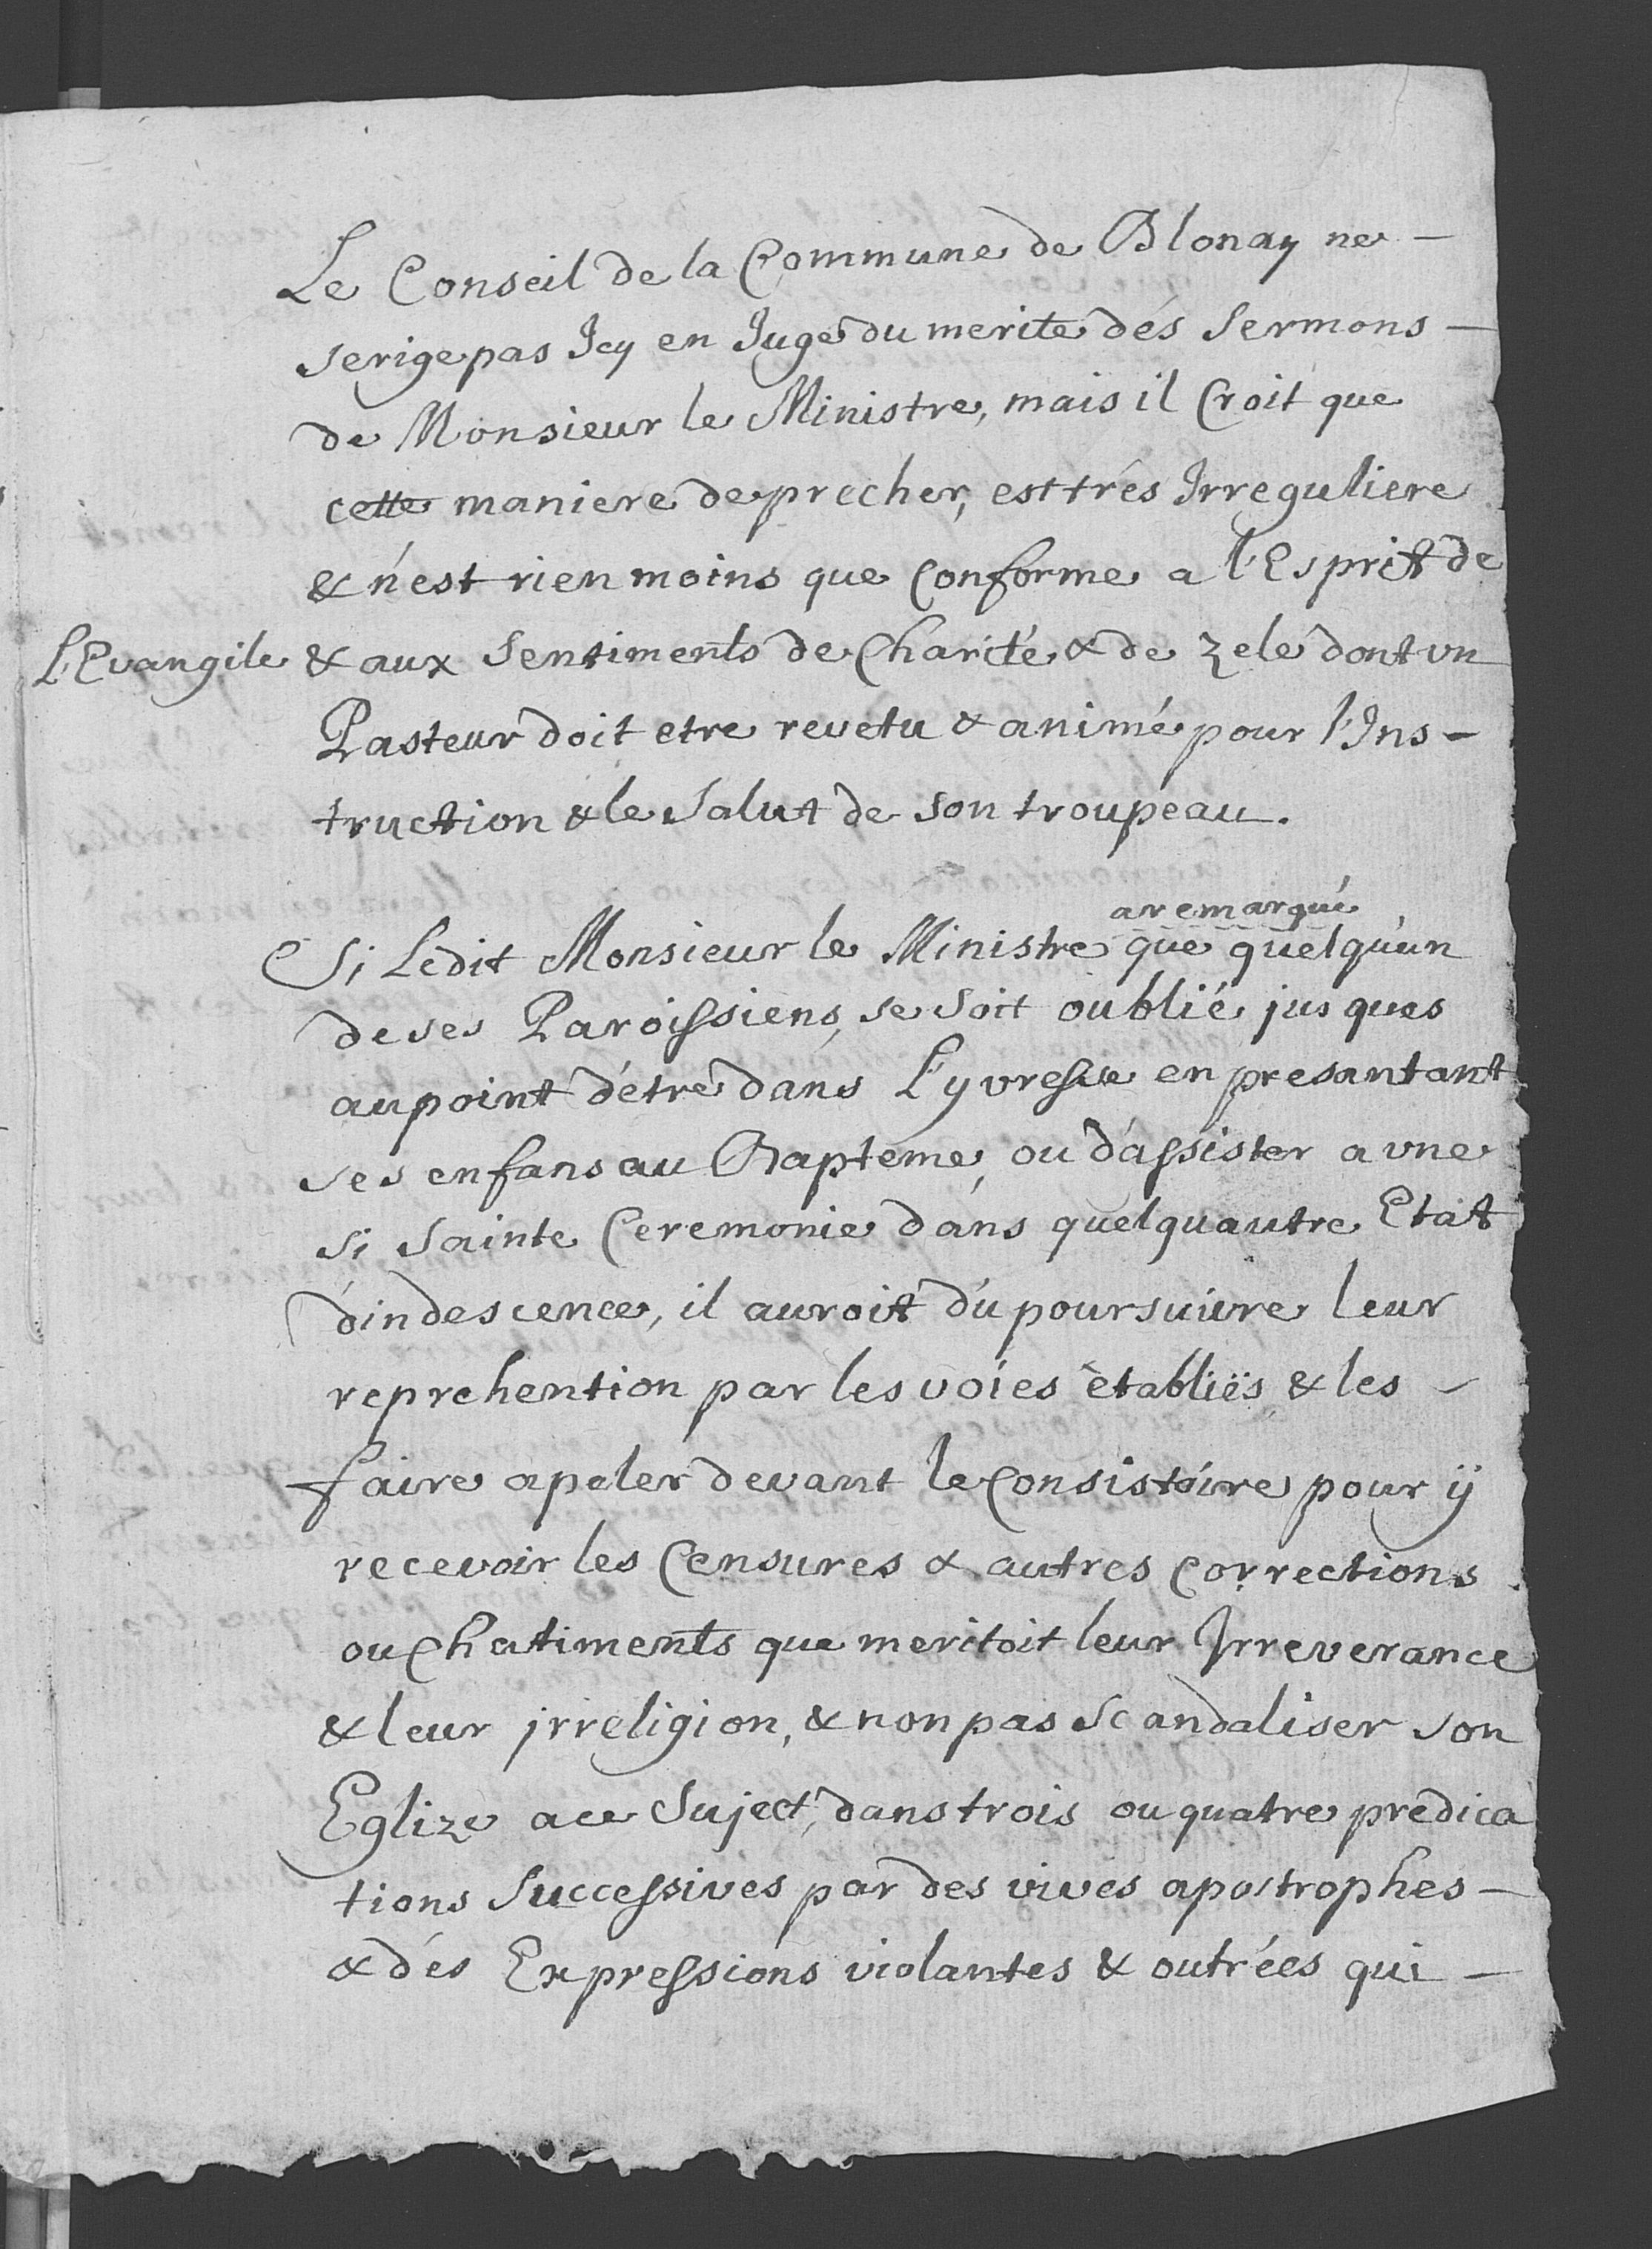 Le Conseil de la Commune de Blonay ne -
serige pas Icy en Juge du merite dés Sermons -
de Monsieur le Ministre, mais il Croit que
cette maniere de precher, est trés Irreguliere
& n'est rien moins que Conforme a l'Esprit de
L'Evangile & aux Sentiments de Charité & de zele dont vn
Pasteur doit etre revetu & animé pour l'Ins -
truction & le Salut de son troupeau.
a remarqué
Si Ledit Monsieur le Ministre que quelqu'un
de ses Paroissiens, se soit oublié jusques
au point d'étre dans L'yvresse en presantant
ses enfans au Bapteme, ou d'assister a vne
si Sainte Ceremonie dans quelquautre Etat
d'indescence, il auroit du poursuivre leur
reprehention par les voies établiës & les -
faire apeler devant le Consistoire pour ÿ
recevoir les Censures & autres Corrections
ou Chatiments que meritoit leur Irreverance
& leur jrreligion, & non pas Scandaliser son
Eglize a ce Suject, dans trois ou quatre predica
tions Successives par des vives apostrophes -
& dés Expressions violantes & outrées qui -